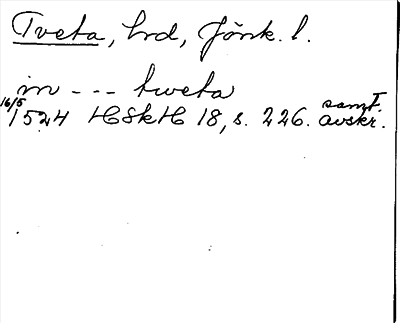 Tveta, hrd, Jönk. l.
in --- tweta
16/5 1524 HSkH 18, s. 226. samt. avskr.